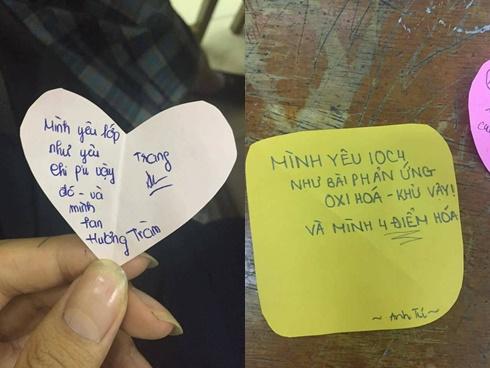 Mình yêu lớp
như yêu
chi pu vậy
đó - và
mình
fan
Hương Tràm
Trang
MÌNH YÊU 10C4
NHƯ BÀI PHẢN ỨNG
OXI HOÁ - KHỬ VẬY!
VÀ MÌNH 4 ĐIỂM HÓA
~ Anh Tú ~